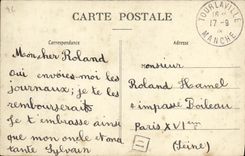 CARTE POSTALE
Correspondance
TOURLAVILLE
17-9
MANCHE
Mon cher Roland
Oui envoies-moi les
journaux; je te les
rembourserai
Je t'embrasse ainsi
que mon oncle et ma
tante Sylvain
Monsieur
Roland Hamel
4 impasse Boileau
Paris XVIème
(Seine)